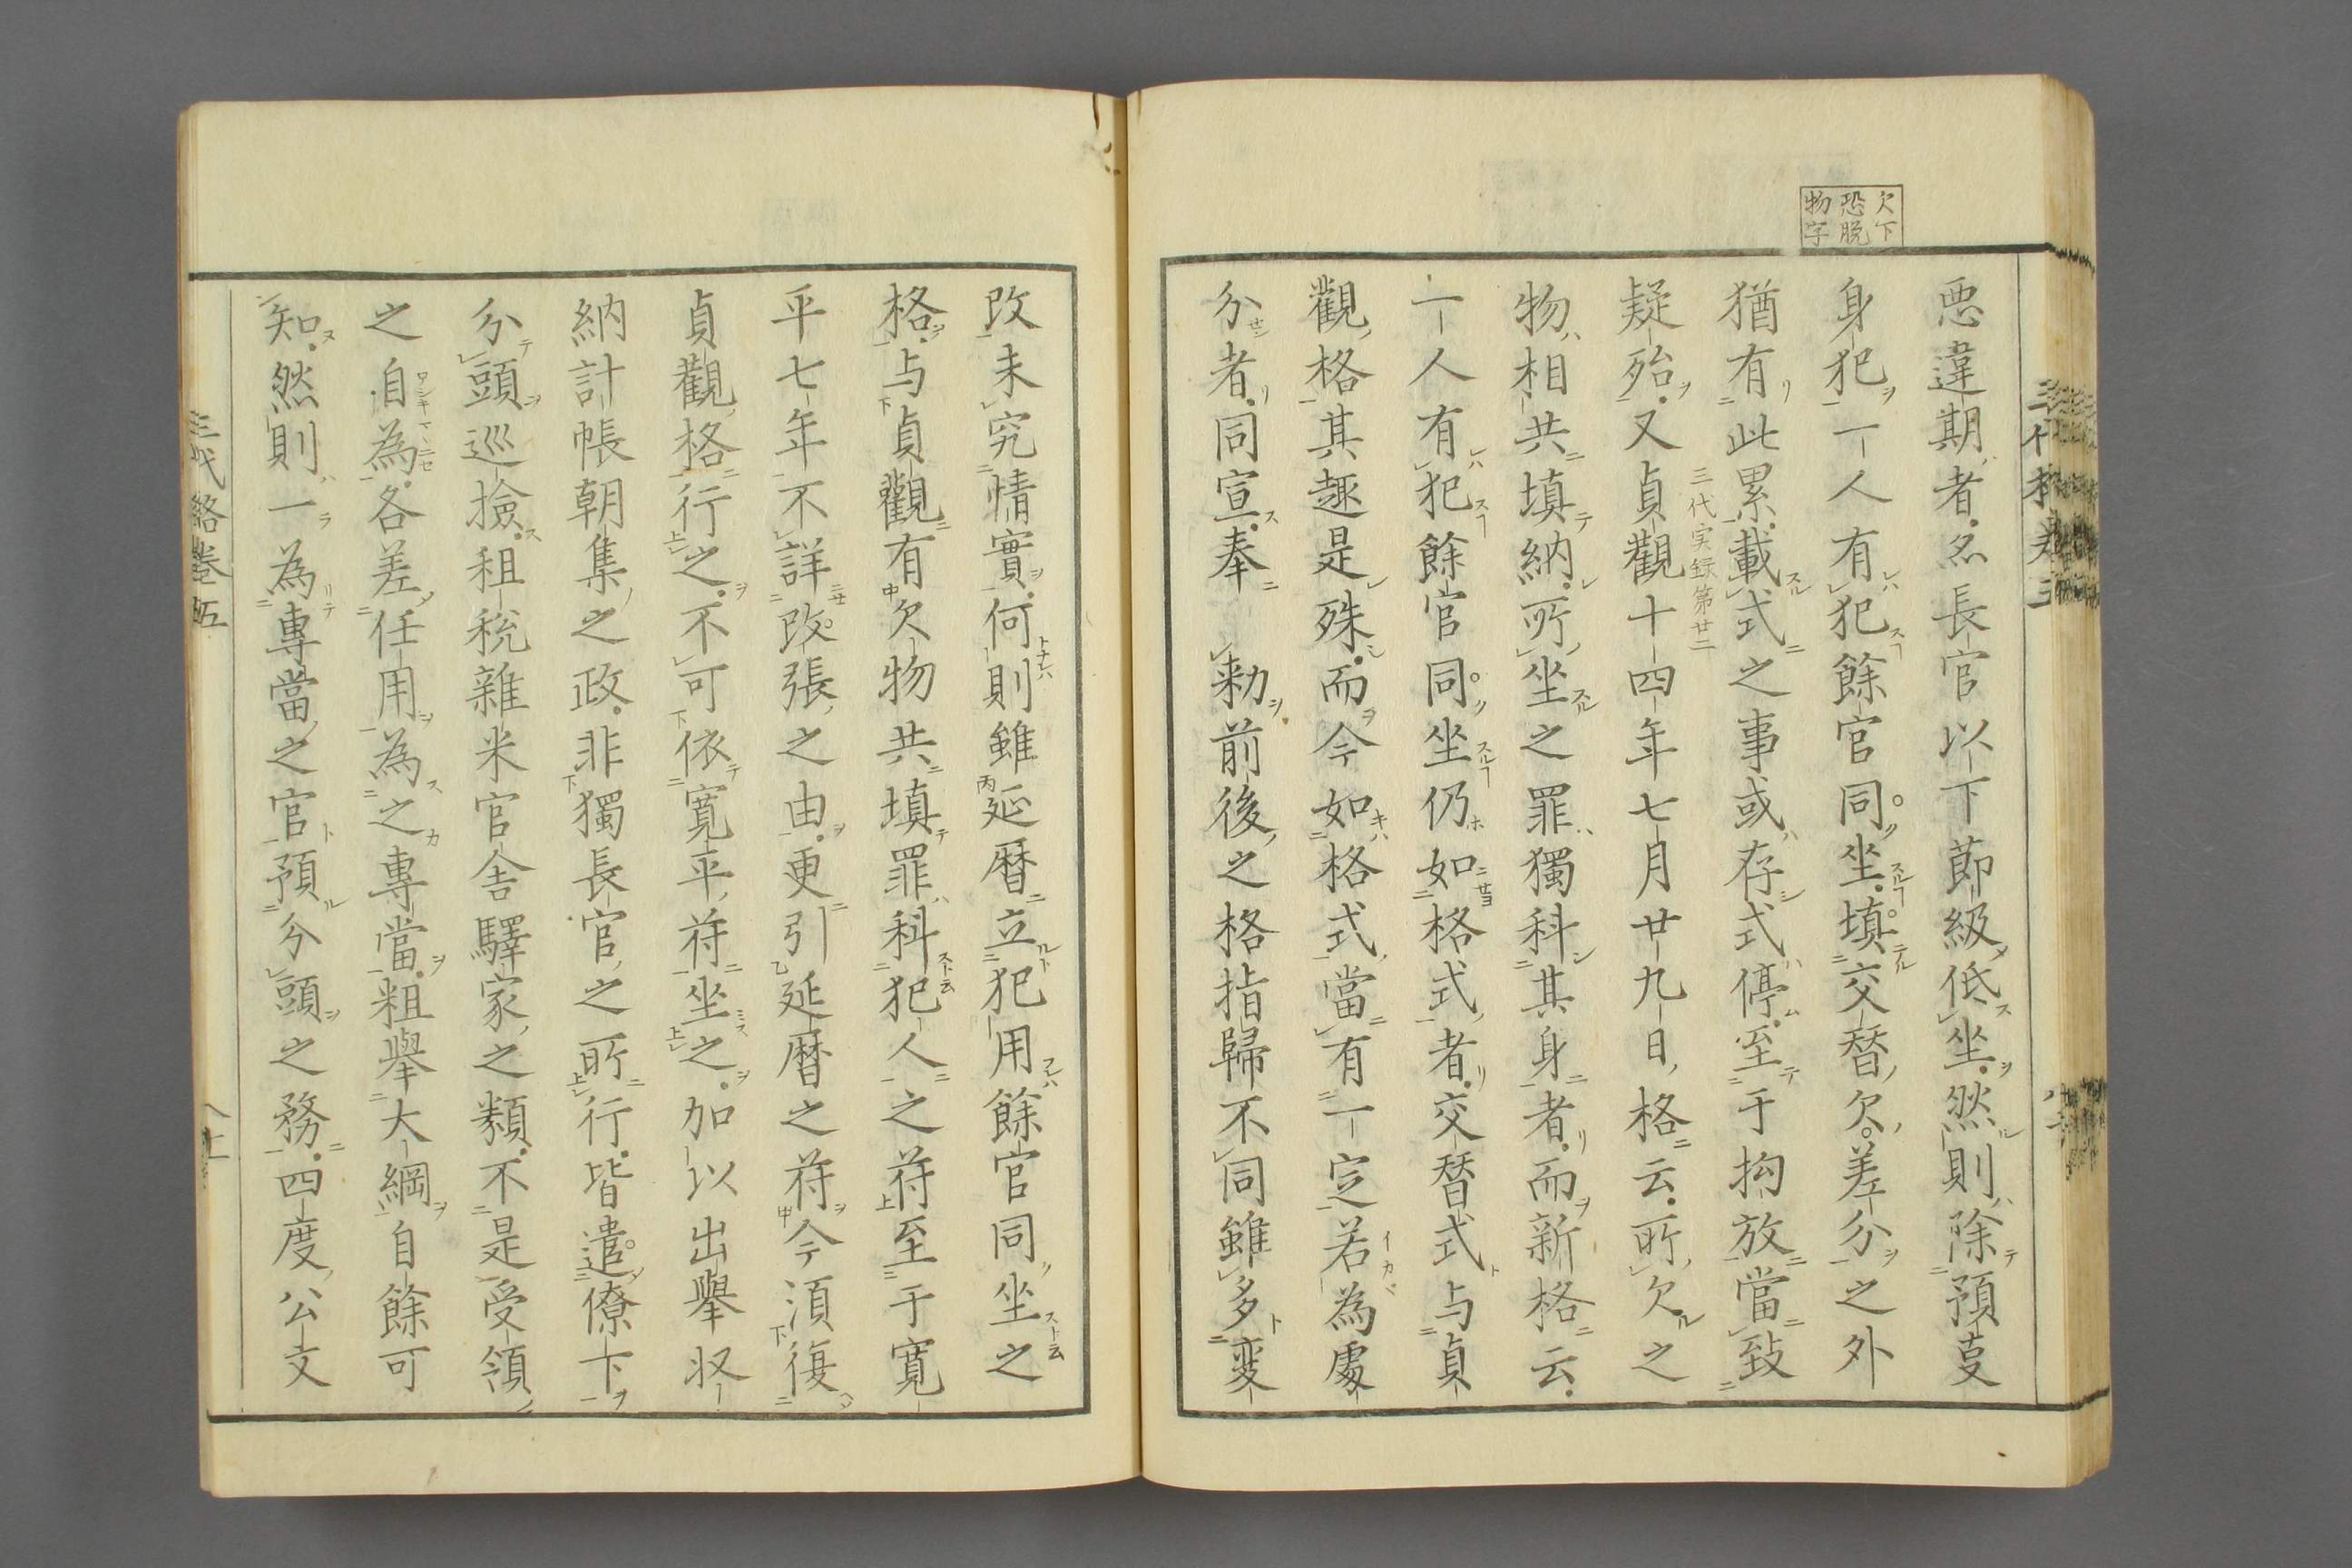 欠下
恐脱
物字
悪違期者亦長官以下節級低坐然則除預支
身犯一人有犯餘官同坐填交替欠差分之外
猶有此累載式之事或存式停至于拘放當致
疑殆又貞觀十四年七月廿九日格云所欠之
三代実録第廿二
物相共填納所坐之罪獨科其身者而新格云
一人有犯餘官同坐仍如格式者交替式与貞
觀格其趣是殊而今如格式當有一定若為處
分者同宣奉　勅前後之格指歸不同雖多変
改未究情實何則雖延暦立犯用餘官同坐之
格与貞觀有欠物共填罪科犯人之符至于寛
平七年不詳改張之由更引延暦之符今須復
貞觀格行之不可依寛平符坐之加以出擧収
納計帳朝集之政非獨長官之所行皆遣僚下
分頭巡撿租税雜米官舎驛家之類不是受領
之自為各差任用為之專當粗擧大綱自餘可
知然則一為專當之官預分頭之務四度公文
三代格巻五